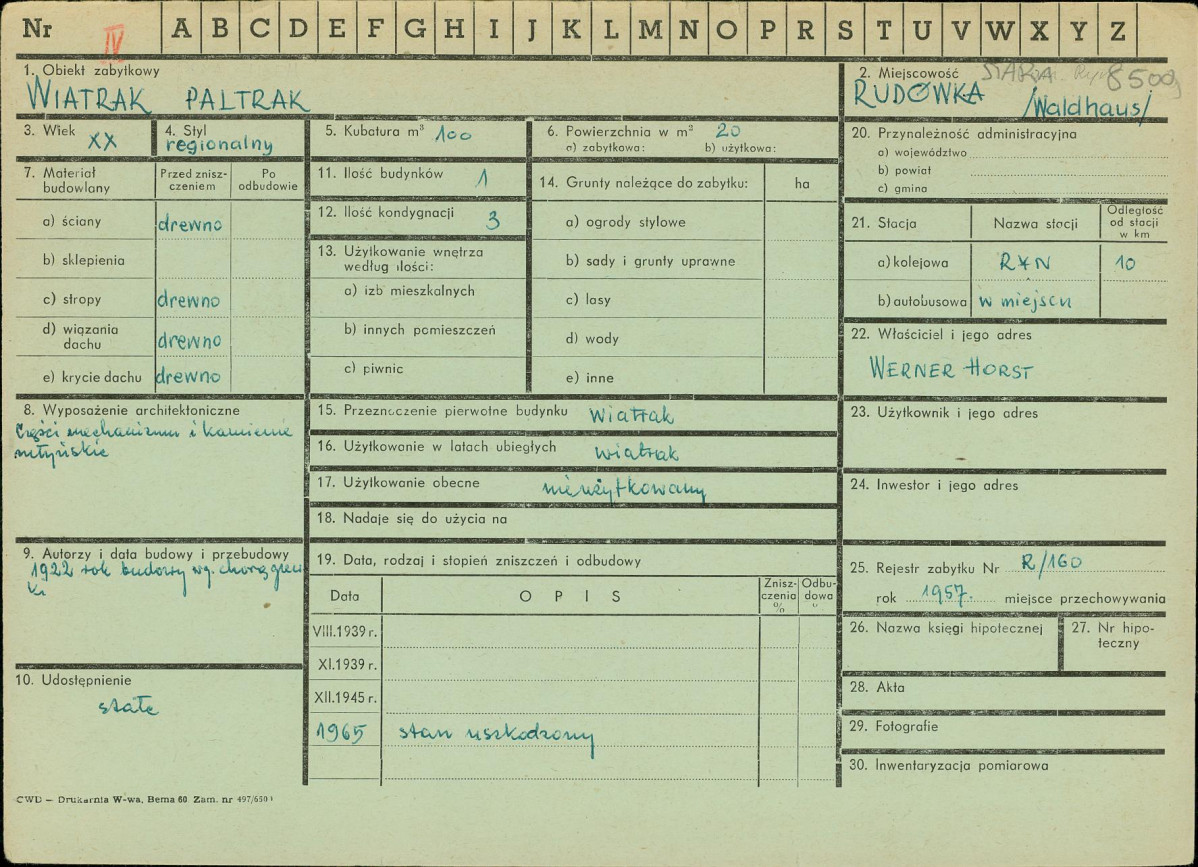 Nr A B C D E F G H I J K L M N O P R S T U V W X Y Z
IV
1. Obiekt zabytkowy
WIATRAK PALTRAK
2. Miejscowość STARA 8500
RUDÓWKA
/Waldhaus/
3. Wiek
XX
4. Styl
regionalny
5. Kubatura m³ 100
6. Powierzchnia w m² 20
a) zabytkowa: b) użytkowa:
20. Przynależność administracyjna
a) województwo
b) powiat
c) gmina
7. Materiał budowlany
Przed znisz-
czeniem
Po
odbudowie
a) ściany drewno
b) sklepienia
c) stropy drewno
d) wiązania
dachu drewno
e) krycie dachu drewno
11. Ilość budynków 1
12. Ilość kondygnacji 3
13. Użytkowanie wnętrza
według ilości:
a) izb mieszkalnych
b) innych pomieszczeń
c) piwnic
14. Grunty należące do zabytku: ha
a) ogrody stylowe
b) sady i grunty uprawne
c) lasy
d) wody
e) inne
21. Stacja Nazwa stacji
Odległość
od stacji
w km
a) kolejowa RYN 10
b) autobusowa w miejscu
22. Właściciel i jego adres
WERNER HORST
8. Wyposażenie architektoniczne
Części mechanizmu i kamienie
młyńskie
15. Przeznaczenie pierwotne budynku wiatrak
16. Użytkowanie w latach ubiegłych wiatrak
17. Użytkowanie obecne nieużytkowany
18. Nadaje się do użycia na
23. Użytkownik i jego adres
24. Inwestor i jego adres
9. Autorzy i data budowy i przebudowy
1922 rok budowy wg. chorągiew
ki
19. Data, rodzaj i stopień zniszczeń i odbudowy
Data OPIS
Znisz-
czenia
%
Odbu-
dowa
VIII.1939 r.
XI.1939 r.
XII.1945 r.
1965 stan uszkodzony
10. Udostępnienie
stałe
25. Rejestr zabytku Nr R/160
rok 1957. miejsce przechowywania
26. Nazwa księgi hipotecznej
27. Nr hipo-
teczny
28. Akta
29. Fotografie
30. Inwentaryzacja pomiarowa
CWD — Drukarnia W-wa, Bema 60 Zam. nr 497/650